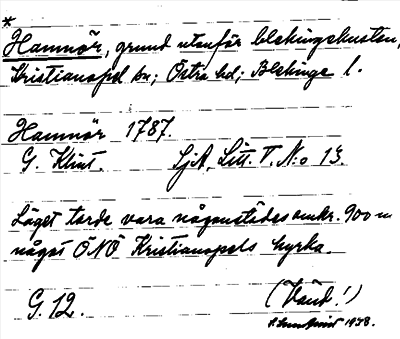 *
Hamnör, grund utanför Blekingekusten,
Kristianopel sn; Östra hd; Blekinge l.
Hamnör 1787.
G. Klint. SjA, Litt. T. N:o 13.
Läget torde vara någonstädes omkr. 900 m
något ÖNÖ Kristianopels kyrka.
G. 12. (Vänd!)
1938.